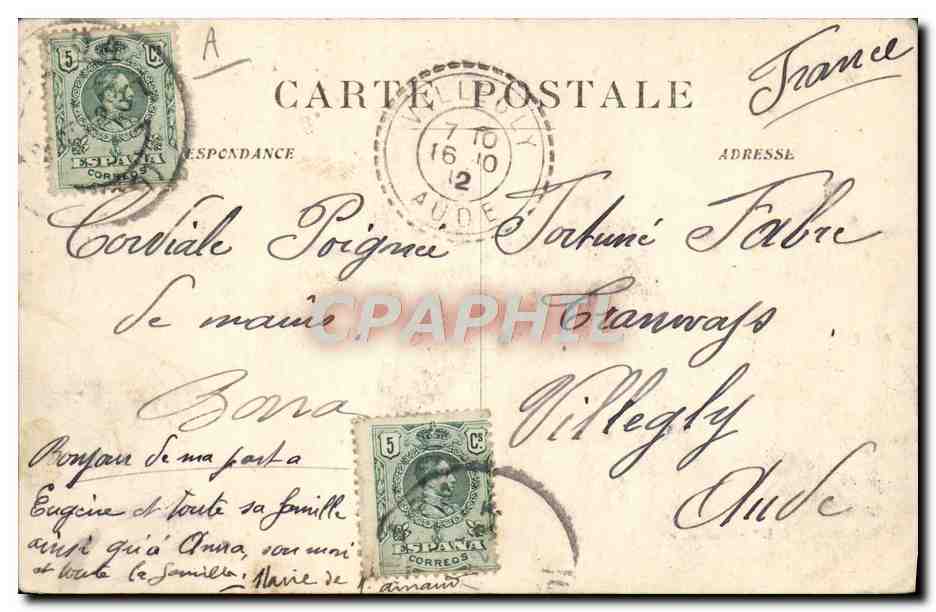 5 Cs
ESPAÑA
CORREOS
A
France
CARTE POSTALE
VILLEGLY
7 10
16 10
12
AUDE
ESPONDANCE
ADRESSE
Cordiale Poignée
de maine
Fortuné Fabre
Tranways
Villegly
Aude
CPAPHIL
Bonjour de ma part a
Eugène et toute sa famille
ainsi qu'à Anna, son mari
et toute la famille. Marie de
5 Cs
ESPAÑA
CORREOS